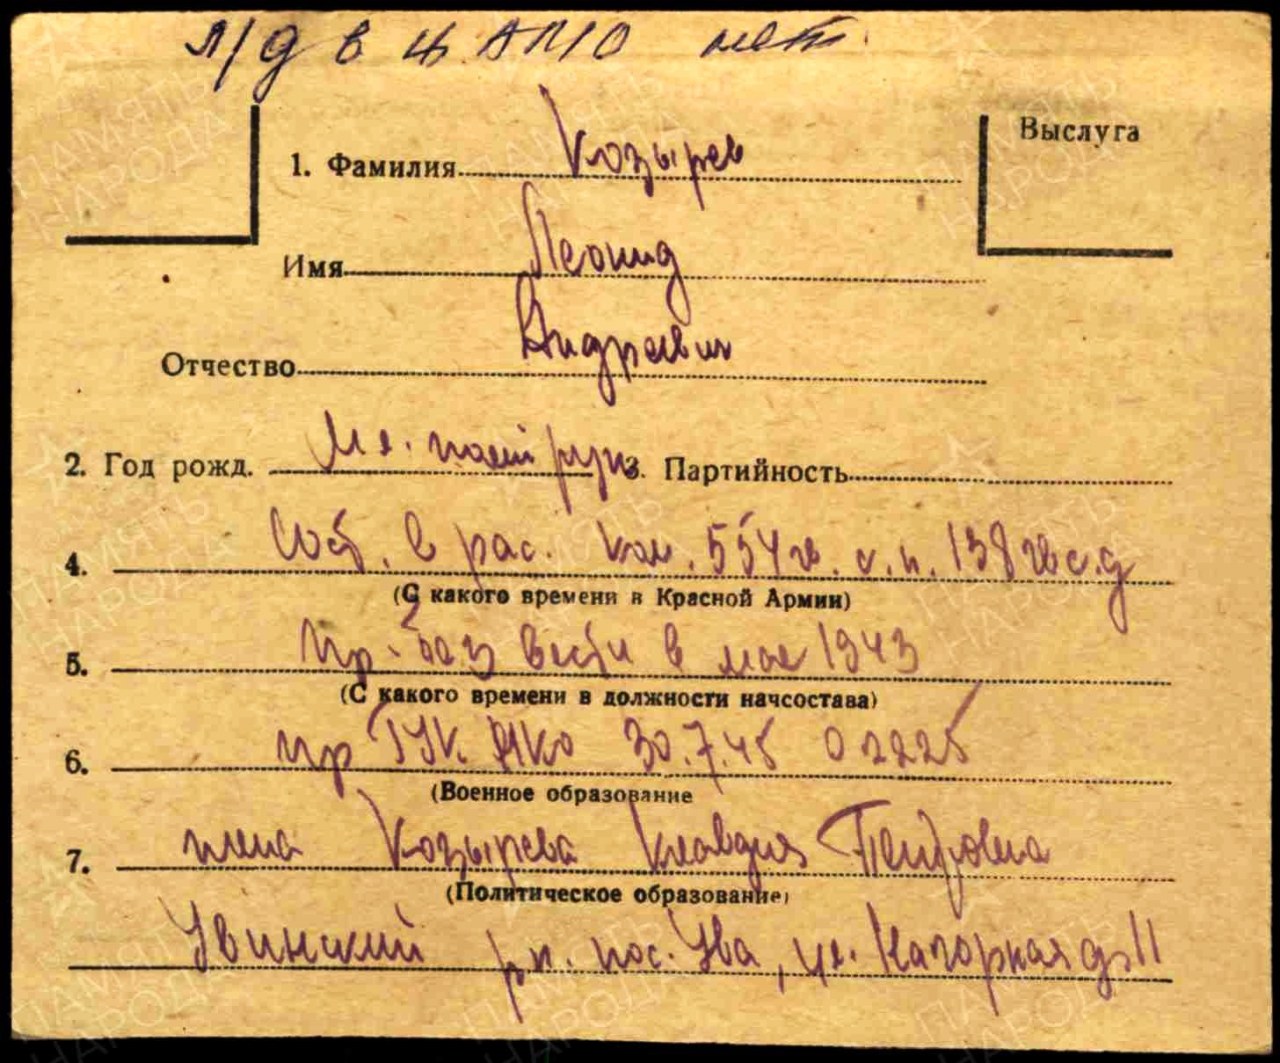 л/д в ЦАМО нет
Выслуга
1. Фамилия Козырев
Имя Леонид
Отчество Андреевич
2. Год рожд. Мл. полит рук 3. Партийность
4. Сост. в рас. ком. 554 гв. с.п. 138 гв с.д
(С какого времени в Красной Армии)
5. Пр. без вести в мае 1943
(С какого времени в должности начсостава)
6. пр ГУК НКО 30.7.45 02225
(Военное образование
7. жена Козырева Клавдия Петровна
(Политическое образование)
Увинский рн. пос. Ува, ул. Нагорная д 11
ПАМЯТЬ НАРОДА